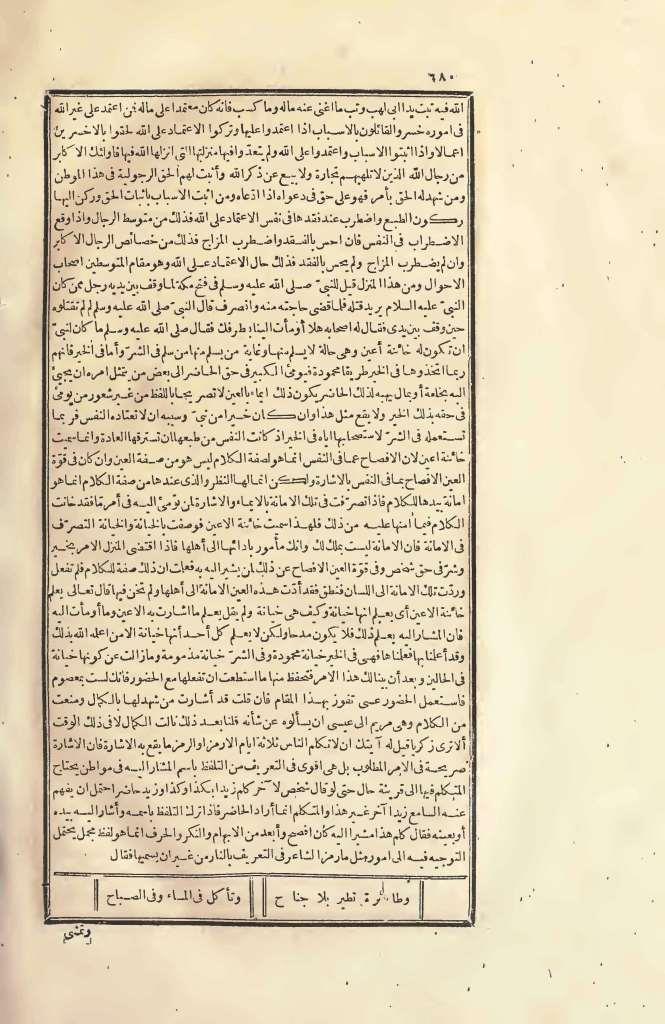 ٦٨٠
الله فيه تبت يدا ابى لهب وتب ما اغنى عنه ماله وما كسب فانه كان معتمدا على ماله فمن اعتمد على غير الله
فى اموره خسر والقائلون بالاسباب اذا اعتمدوا عليها وتركوا الاعتماد على الله لحقوا بالاخسرين
اعمالا واذا اثبتوا الاسباب واعتمدوا على الله ولم يتعدوا فيها منزلتها التى انزلها الله فيها فاولئك الاكابر
من رجال الله الذين لا تلهيهم تجارة ولا بيع عن ذكر الله وأثبت لهم الحق الرجولية فى هذا الموطن
ومن شهد له الحق بأمر فهو على حق فى دعواه اذا ادعاه ومن اثبت الاسباب باثبات الحق وركن اليها
ركون الطبع واضطرب عند فقدها فى نفس الاعتماد على الله فذلك من متوسط الرجال واذا وقع
الاضطراب فى النفس فان احس بالفقد واضطرب المزاج فذلك من خصائص الرجال الاكابر
وان لم يضطرب المزاج ولم يحس بالفقد فذلك حال الاعتماد على الله وهو مقام المتوسطين اصحاب
الاحوال ومن هذا المنزل قيل للنبى صلى الله عليه وسلم فى فتح مكة لما وقف بين يديه رجل ممن كان
النبى عليه السلام يريد قتله فلما قضى حاجته منه وانصرف قال النبى صلى الله عليه وسلم لم لم تقتلوه
حين وقف بين يدى فقال له اصحابه هلا أومأت الينا بطرفك فقال صلى الله عليه وسلم ما كان لنبى
ان تكون له خائنة أعين وهى حالة لا يسلم منها وغاية من يسلم منها من سلم فى الشر وأما فى الخير فانهم
ربما اتخذوها فى الخير طريقا محمودة فيومئ الكبير فى حق الحاضر الى بعض من يتمثل امره ان يجيئ
اليه بخلعة أو بمال يهبه لذلك الحاضر يكون ذلك ايماء بالعين لا تصريحا باللفظ من غير شعور من يومئ
فى حقه بذلك الخير ولا يقع مثل هذا وان كان خيرا من نبى وسببه ان لا تعتاده النفس فربما
تستعمله فى الشر لاستصحابها اياه فى الخير اذ كانت النفس من طبعها ان تسترقها العادة وانما سميت
خائنة اعين لان الافصاح عما فى النفس انما هو لصفة الكلام ليس هو من صفة العين وان كان فى قوة
العين الافصاح بما فى النفس بالاشارة ولكن انما لها النظر والذى عندها من صفة الكلام انما هو
امانة بيدها للكلام فاذا تصرفت فى تلك الامانة بالايماء والاشارة لمن تومئ اليه فى أمر ما فقد خانت
الكلام فيما امنها عليه من ذلك فلهذا سميت خائنة الاعين فوصفت بالخيانة والخيانة التصرف
فى الامانة فان الامانة ليست بملك لك وانك مأمور بادائها الى أهلها فاذا اقتضى المنزل الامر بخير
وشر فى حق شخص وفى قوة العين الافصاح عن ذلك لمن يشير اليه به فعلمت ان ذلك صفة للكلام فلم تفعل
وردت تلك الامانة الى اللسان فنطق فقد أدت هذه العين الامانة الى أهلها ولم تخن فيها قال تعالى يعلم
خائنة الاعين أى يعلم انها خيانة وكيف هى خيانة ولم يقل يعلم ما اشارت به الاعين وما أومأت اليه
فان المشار اليه يعلم ذلك فلا يكون مدحا ولكن لا يعلم كل أحد أنها خيانة الا من اعلمه الله بذلك
وقد أعلنا بها فعلناها فهى فى الخير خيانة محمودة وفى الشر خيانة مذمومة وما زالت عن كونها خيانة
فى الحالين وبعد أن بينا لك هذا الامر فتحفظ منها ما استطعت ان تفعلها مع الحضور فانك لست بمعصوم
فاستعمل الحضور عسى تفوز بهذا المقام فان قلت قد أشارت من شهد لها بالكمال ومنعت
من الكلام وهى مريم الى عيسى ان يسألوه عن شأنه قلنا بعد ذلك نالت الكمال لا فى ذلك الوقت
ألا ترى زكريا قيل له آيتك ان لا تكلم الناس ثلاثة ايام الا رمزا والرمز ما يقع به الاشارة فان الاشارة
صريحة فى الامر المطلوب بل هى اقوى فى التعريف من التلفظ باسم المشار اليه فى مواطن يحتاج
المتكلم فيها الى قرينة حال حتى لو قال شخص لا آخر كلم زيدا بكذا وكذا وزيد حاضر احتمل ان يفهم
عنه السامع زيدا آخر غير هذا والمتكلم انما أراد الحاضر فاذا ترك التلفظ باسمه وأشار اليه بيده
أو بعينه فقال كلم هذا مشيرا اليه كان افصح وأبعد من الابهام والنكر والحرف انما هو لفظ مجمل يحتمل
التوجيه فيه الى امور مثل ما رمز الشاعر فى التعريف بالنار من غير ان يسميها فقال
وطائرة تطير بلا جناح وتأكل فى المساء وفى الصباح
وتمشى